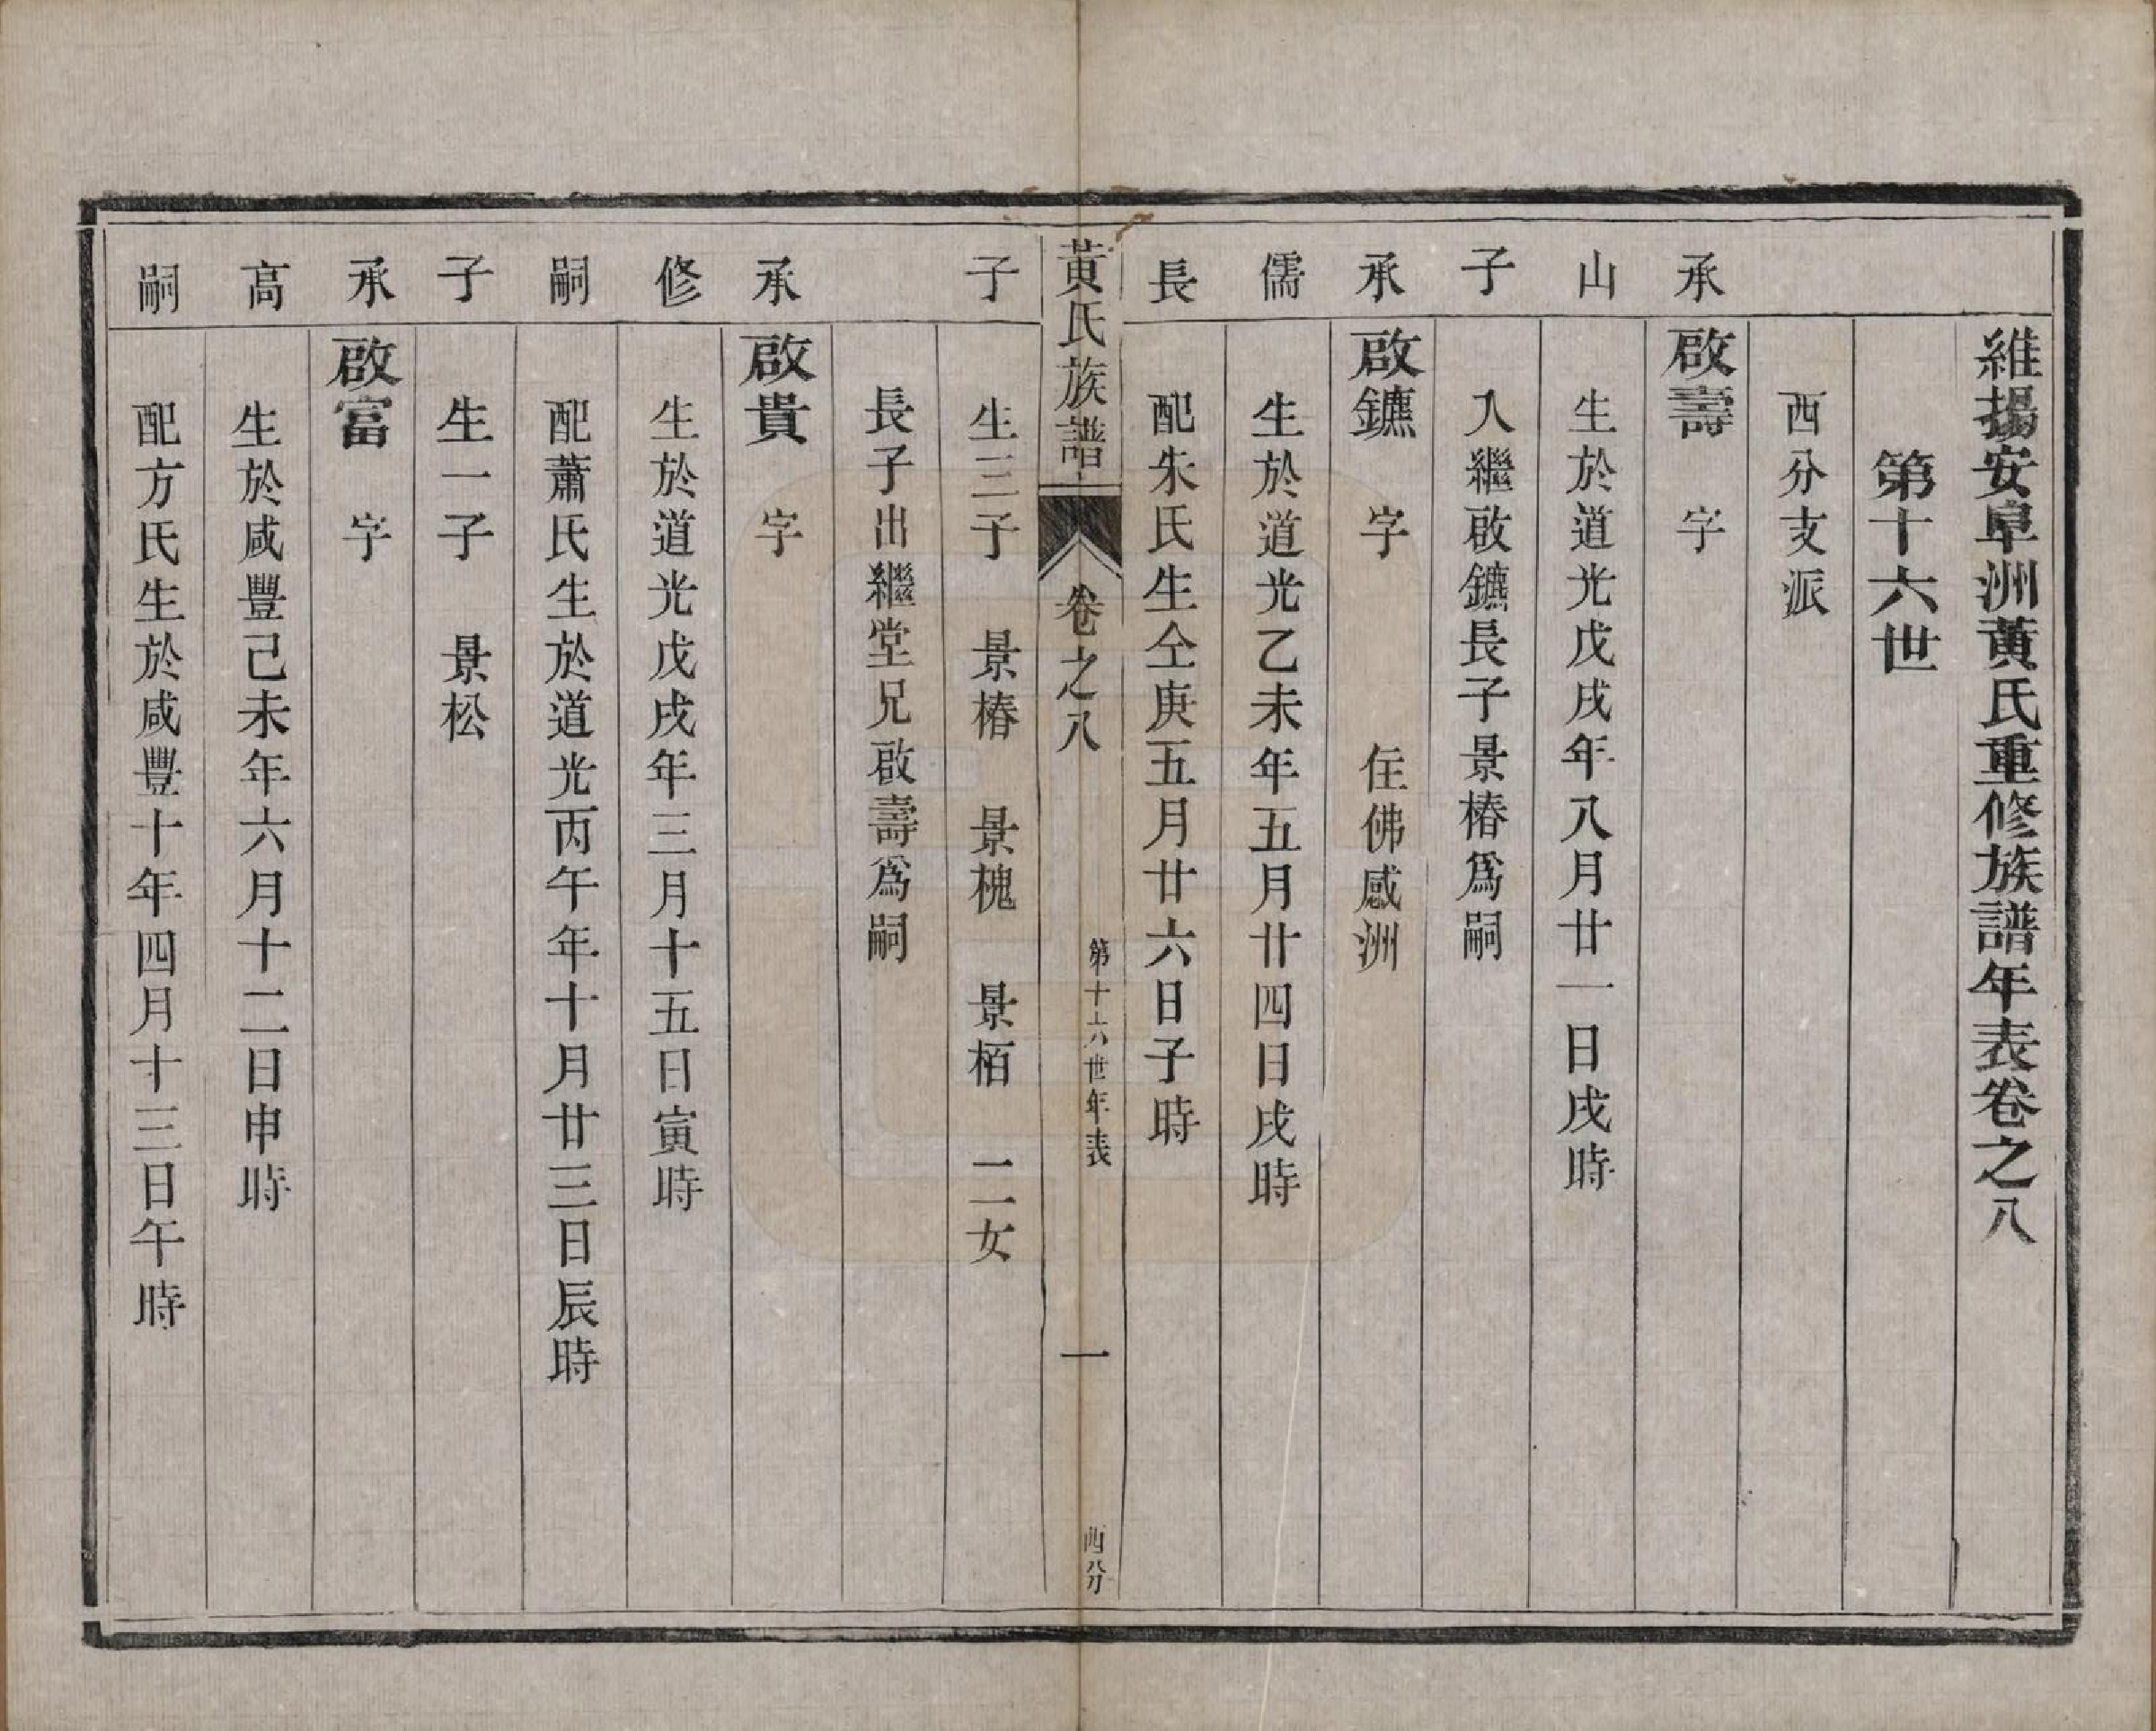 維揚安阜洲黃氏重修族譜年表卷之八
第十六世
西分支派
承 啟壽 字
山 生於道光戊戌年八月廿一日戌時
子 入繼啟鑣長子景椿為嗣
承 啟鑣 字 住佛感洲
儒 生於道光乙未年五月廿四日戌時
長 配朱氏生仝庚五月廿六日子時
黃氏族譜 卷之八 第十六世年表 一 西分
子 生三子 景椿 景槐 景栢 二女
長子出繼堂兄啟壽為嗣
承 啟貴 字
修 生於道光戊戌年三月十五日寅時
嗣 配蕭氏生於道光丙午年十月廿三日辰時
子 生一子 景松
承 啟富 字
高 生於咸豐己未年六月十二日申時
嗣 配方氏生於咸豐十年四月十三日午時